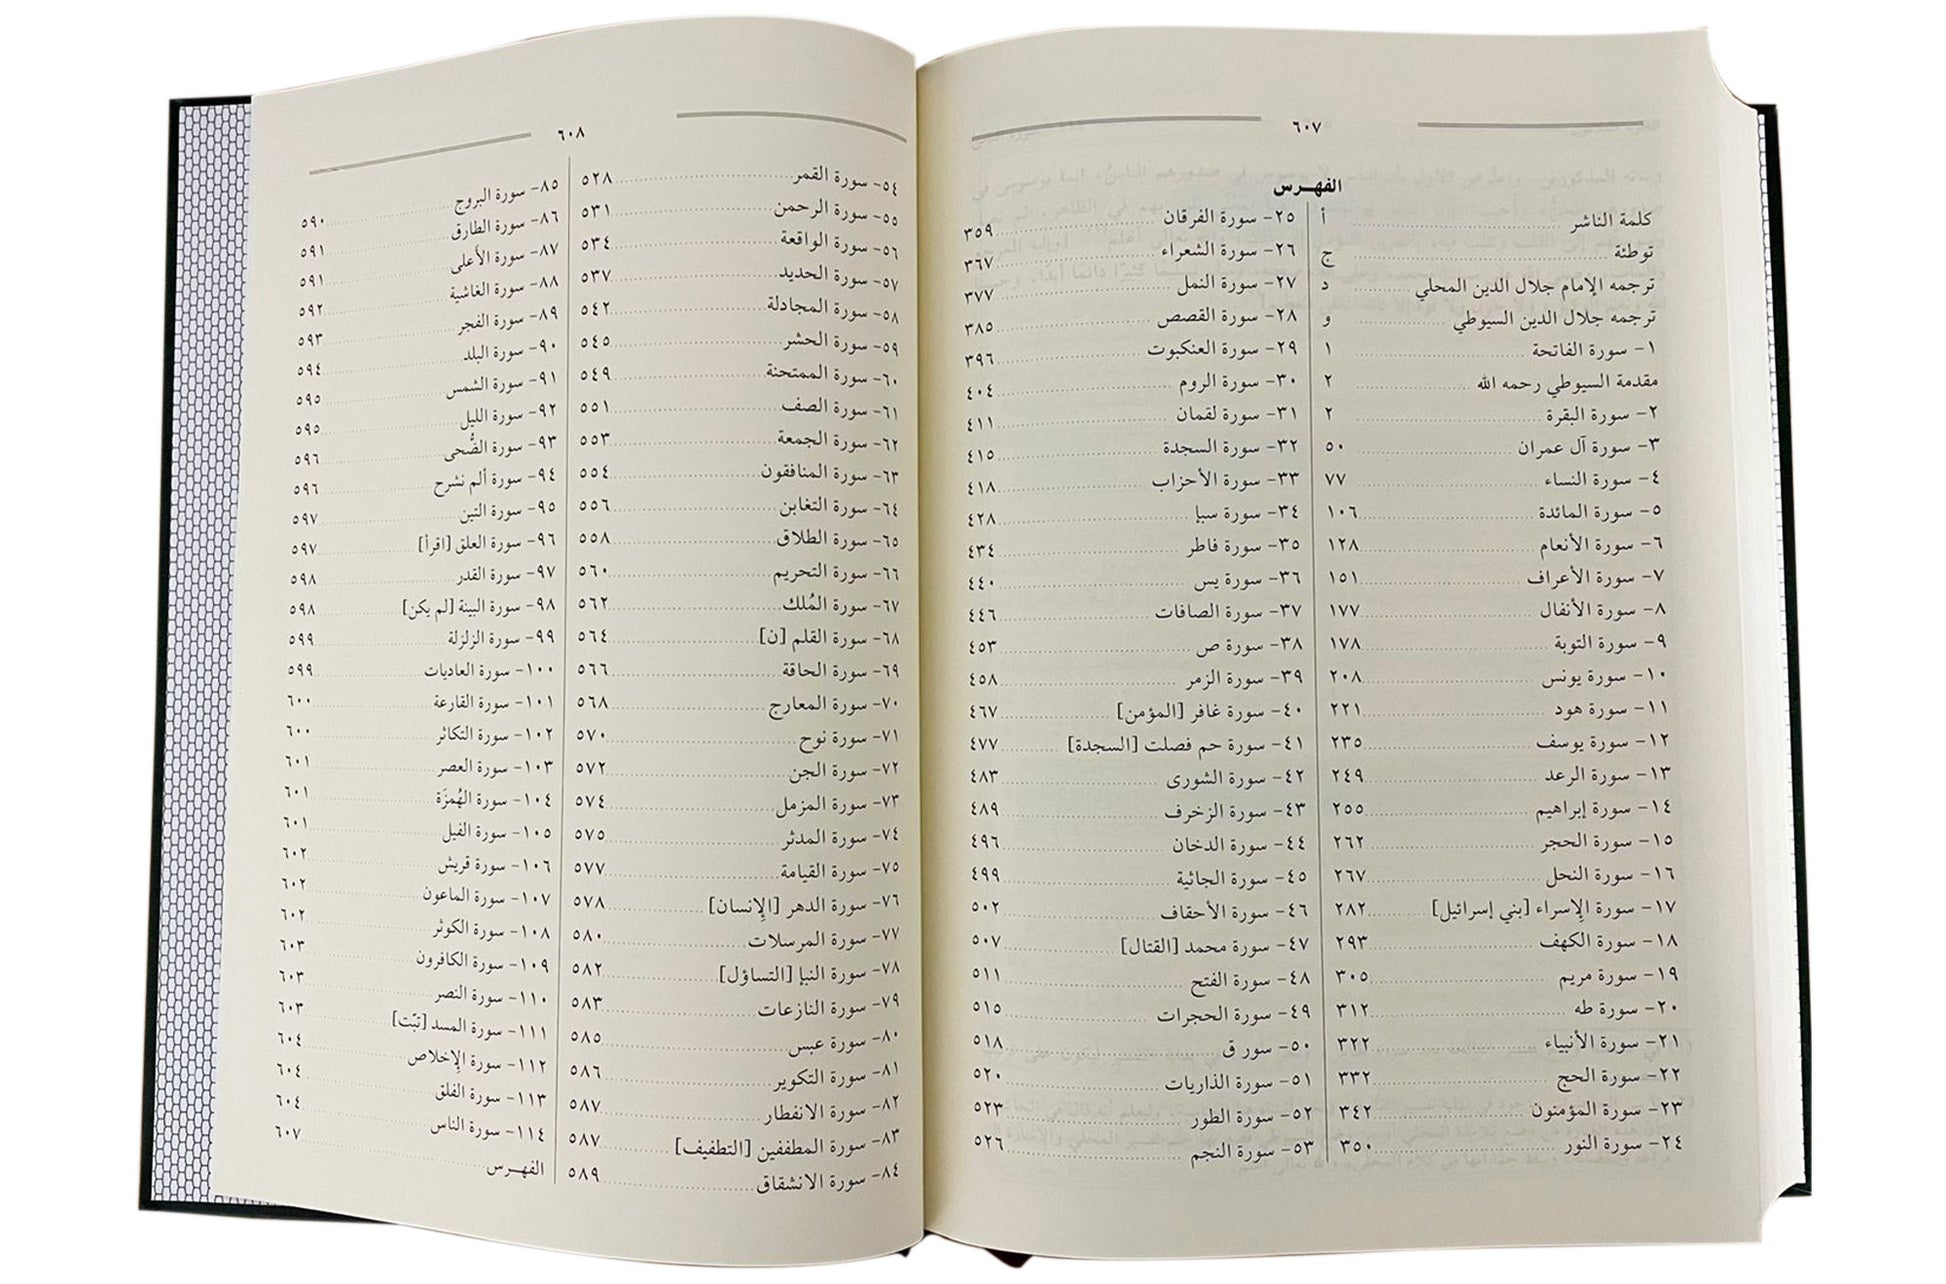 ٦٠٧
الفهرس
كلمة الناشر ........ أ
توطئة ........ ج
ترجمه الإمام جلال الدين المحلي د
ترجمه جلال الدين السيوطي ........ و
١- سورة الفاتحة ........ ١
مقدمة السيوطي رحمه الله ........ ٢
٢- سورة البقرة ........ ٢
٣- سورة آل عمران ........ ٥٠
٤- سورة النساء ........ ٧٧
٥- سورة المائدة ........ ١٠٦
٦- سورة الأنعام ........ ١٢٨
٧- سورة الأعراف ........ ١٥١
٨- سورة الأنفال ........ ١٧٧
٩- سورة التوبة ........ ١٧٨
١٠- سورة يونس ........ ٢٠٨
١١- سورة هود ........ ٢٢١
١٢- سورة يوسف ........ ٢٣٥
١٣- سورة الرعد ........ ٢٤٩
١٤- سورة إبراهيم ........ ٢٥٥
١٥- سورة الحجر ........ ٢٦٢
١٦- سورة النحل ........ ٢٦٧
١٧- سورة الإسراء [بني إسرائيل] ........ ٢٨٢
١٨- سورة الكهف ........ ٢٩٣
١٩- سورة مريم ........ ٣٠٥
٢٠- سورة طه ........ ٣١٢
٢١- سورة الأنبياء ........ ٣٢٢
٢٢- سورة الحج ........ ٣٣٢
٢٣- سورة المؤمنون ........ ٣٤٢
٢٤- سورة النور ........ ٣٥٠
٢٥- سورة الفرقان ........ ٣٥٩
٢٦- سورة الشعراء ........ ٣٦٧
٢٧- سورة النمل ........ ٣٧٧
٢٨- سورة القصص ........ ٣٨٥
٢٩- سورة العنكبوت ........ ٣٩٦
٣٠- سورة الروم ........ ٤٠٤
٣١- سورة لقمان ........ ٤١١
٣٢- سورة السجدة ........ ٤١٥
٣٣- سورة الأحزاب ........ ٤١٨
٣٤- سورة سبإ ........ ٤٢٨
٣٥- سورة فاطر ........ ٤٣٤
٣٦- سورة يس ........ ٤٤٠
٣٧- سورة الصافات ........ ٤٤٦
٣٨- سورة ص ........ ٤٥٣
٣٩- سورة الزمر ........ ٤٥٨
٤٠- سورة غافر [المؤمن] ........ ٤٦٧
٤١- سورة حم فصلت [السجدة] ........ ٤٧٧
٤٢- سورة الشورى ........ ٤٨٣
٤٣- سورة الزخرف ........ ٤٨٩
٤٤- سورة الدخان ........ ٤٩٦
٤٥- سورة الجاثية ........ ٤٩٩
٤٦- سورة الأحقاف ........ ٥٠٢
٤٧- سورة محمد [القتال] ........ ٥٠٧
٤٨- سورة الفتح ........ ٥١١
٤٩- سورة الحجرات ........ ٥١٥
٥٠- سور ق ........ ٥١٨
٥١- سورة الذاريات ........ ٥٢٠
٥٢- سورة الطور ........ ٥٢٣
٥٣- سورة النجم ........ ٥٢٦
٦٠٨
٥٤- سورة القمر ........ ٥٢٨
٥٥- سورة الرحمن ........ ٥٣١
٥٦- سورة الواقعة ........ ٥٣٤
٥٧- سورة الحديد ........ ٥٣٧
٥٨- سورة المجادلة ........ ٥٤٢
٥٩- سورة الحشر ........ ٥٤٥
٦٠- سورة الممتحنة ........ ٥٤٩
٦١- سورة الصف ........ ٥٥١
٦٢- سورة الجمعة ........ ٥٥٣
٦٣- سورة المنافقون ........ ٥٥٤
٦٤- سورة التغابن ........ ٥٥٦
٦٥- سورة الطلاق ........ ٥٥٨
٦٦- سورة التحريم ........ ٥٦٠
٦٧- سورة المُلك ........ ٥٦٢
٦٨- سورة القلم [ن] ........ ٥٦٤
٦٩- سورة الحاقة ........ ٥٦٦
٧٠- سورة المعارج ........ ٥٦٨
٧١- سورة نوح ........ ٥٧٠
٧٢- سورة الجن ........ ٥٧٢
٧٣- سورة المزمل ........ ٥٧٤
٧٤- سورة المدثر ........ ٥٧٥
٧٥- سورة القيامة ........ ٥٧٧
٧٦- سورة الدهر [الإنسان] ........ ٥٧٨
٧٧- سورة المرسلات ........ ٥٨٠
٧٨- سورة النبإ [التساؤل] ........ ٥٨٢
٧٩- سورة النازعات ........ ٥٨٣
٨٠- سورة عبس ........ ٥٨٥
٨١- سورة التكوير ........ ٥٨٦
٨٢- سورة الانفطار ........ ٥٨٧
٨٣- سورة المطففين [التطفيف] ........ ٥٨٧
٨٤- سورة الانشقاق ........ ٥٨٩
٨٥- سورة البروج ........ ٥٩٠
٨٦- سورة الطارق ........ ٥٩١
٨٧- سورة الأعلى ........ ٥٩١
٨٨- سورة الغاشية ........ ٥٩٢
٨٩- سورة الفجر ........ ٥٩٣
٩٠- سورة البلد ........ ٥٩٤
٩١- سورة الشمس ........ ٥٩٥
٩٢- سورة الليل ........ ٥٩٥
٩٣- سورة الضُّحى ........ ٥٩٦
٩٤- سورة ألم نشرح ........ ٥٩٦
٩٥- سورة التين ........ ٥٩٧
٩٦- سورة العلق [اقرأ] ........ ٥٩٧
٩٧- سورة القدر ........ ٥٩٨
٩٨- سورة البينة [لم يكن] ........ ٥٩٨
٩٩- سورة الزلزلة ........ ٥٩٩
١٠٠- سورة العاديات ........ ٥٩٩
١٠١- سورة القارعة ........ ٦٠٠
١٠٢- سورة التكاثر ........ ٦٠٠
١٠٣- سورة العصر ........ ٦٠١
١٠٤- سورة الهُمزَة ........ ٦٠١
١٠٥- سورة الفيل ........ ٦٠١
١٠٦- سورة قريش ........ ٦٠٢
١٠٧- سورة الماعون ........ ٦٠٢
١٠٨- سورة الكوثر ........ ٦٠٢
١٠٩- سورة الكافرون ........ ٦٠٣
١١٠- سورة النصر ........ ٦٠٣
١١١- سورة المسد [تبّت] ........ ٦٠٣
١١٢- سورة الإخلاص ........ ٦٠٤
١١٣- سورة الفلق ........ ٦٠٤
١١٤- سورة الناس ........ ٦٠٤
الفهرس ........ ٦٠٧